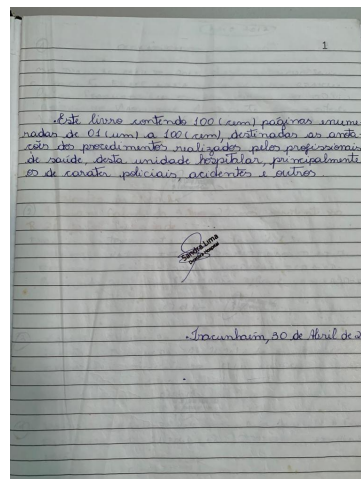 1
.Este livro contendo 100 (cem) páginas enume
radas de 01 (um) a 100 (cem), destinadas as anota
ções dos procedimentos realizados pelos profissionais
de saúde, desta unidade hospitalar, principalmente
os de carater policiais, acidentes e outros
Sandra Lima
.Tracunhaém, 30 de Abril de 2